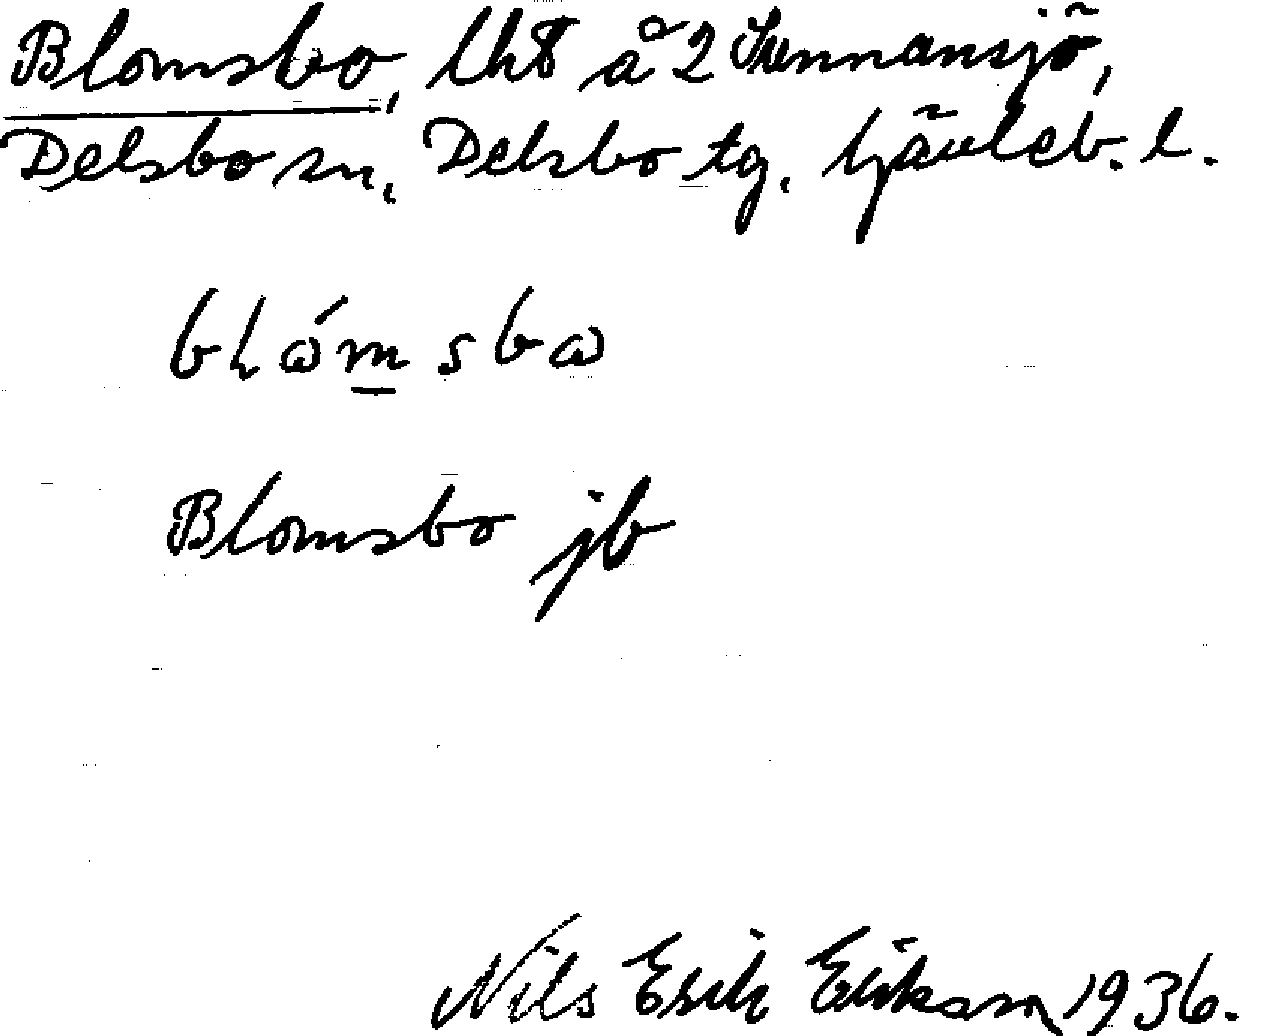 Blomsbo, lht å 2 Sunnansjö,
Delsbo sn, Delsbo tg. Gävleb. l.
Blomsbo jb
Nils Erik Eriksson 1936.